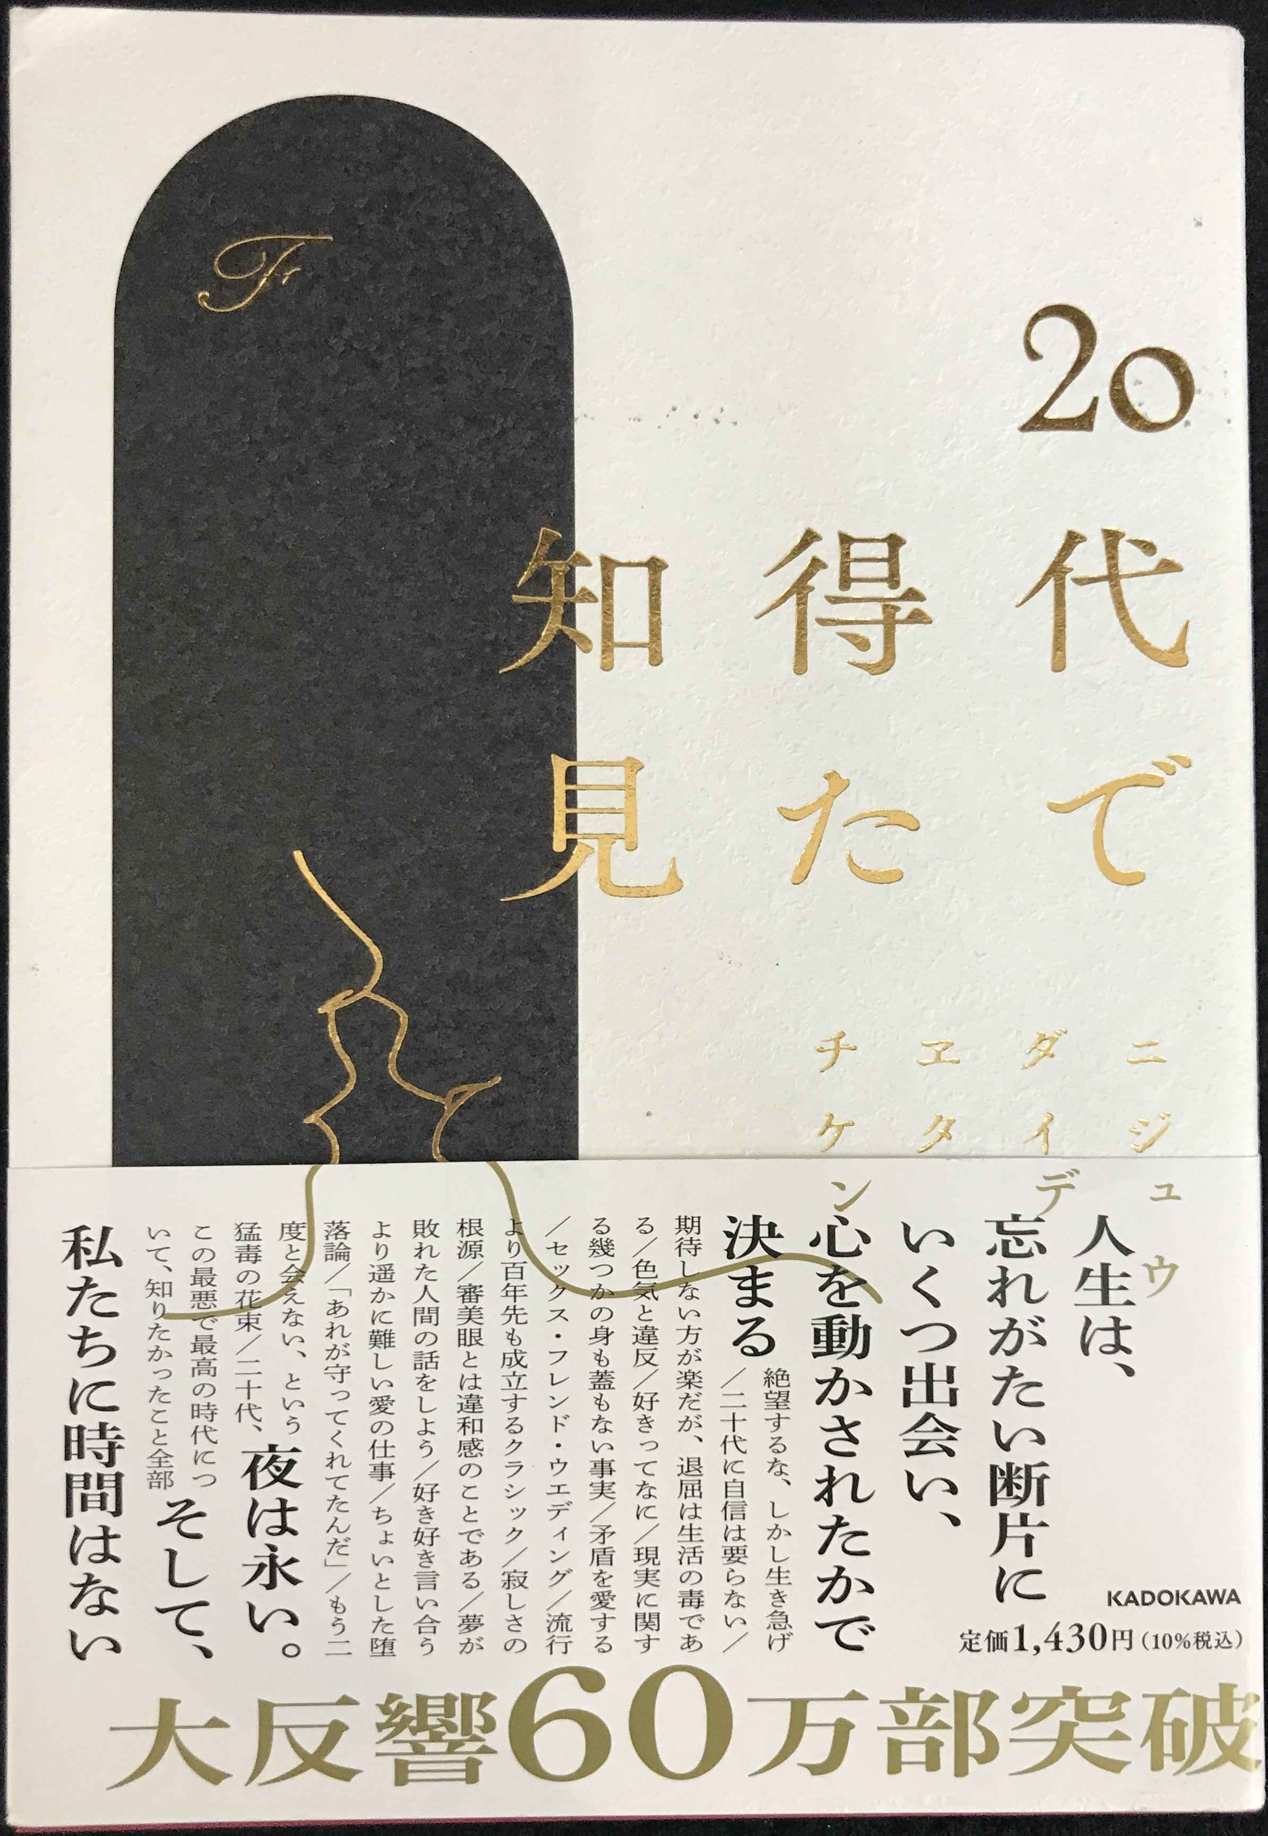 20
代で
得た
知見
F
Fr
ニジュウ
ダイデ
ヱタ
チケン
人生は、
忘れがたい断片に
いくつ出会い、
心を動かされたかで
決まる
絶望するな、しかし生き急げ
／二十代に自信は要らない／
期待しない方が楽だが、退屈は生活の毒であ
る／色気と違反／好きってなに／現実に関す
る幾つかの身も蓋もない事実／矛盾を愛する
／セックス・フレンド・ウエディング／流行
より百年先も成立するクラシック／寂しさの
根源／審美眼とは違和感のことである／夢が
敗れた人間の話をしよう／好き好き言い合う
より遥かに難しい愛の仕事／ちょいとした堕
落論／「あれが守ってくれてたんだ」／もう二
度と会えない、という
猛毒の花束／二十代、
この最悪で最高の時代につ
いて、知りたかったこと全部
夜は永い。
そして、
私たちに時間はない
KADOKAWA
定価1,430円（10%税込）
大反響60万部突破